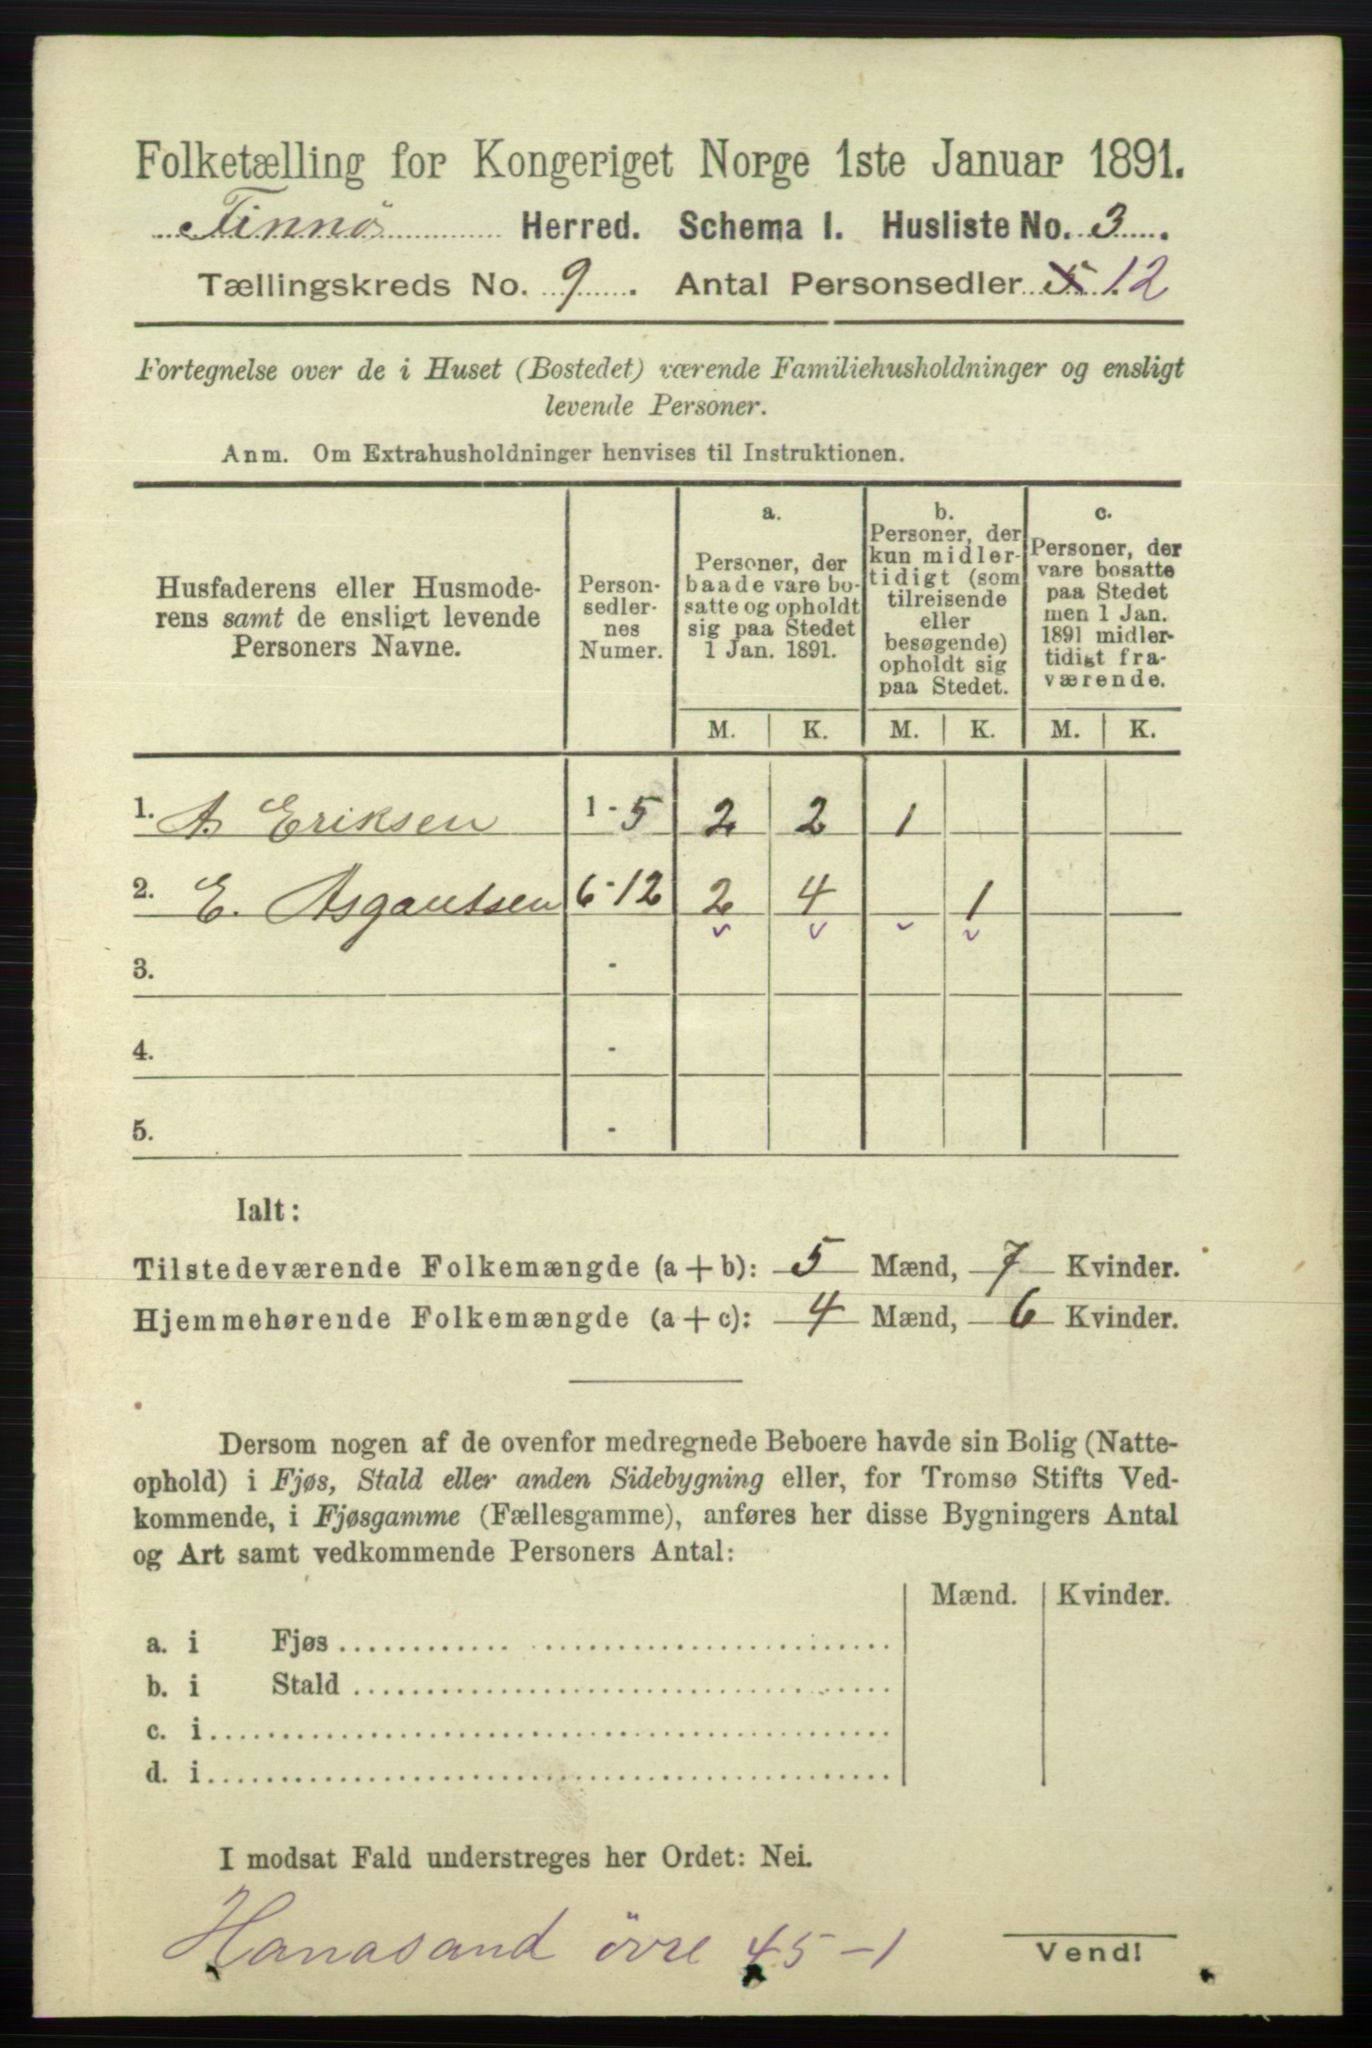 Folketælling for Kongeriget Norge 1ste Januar 1891.
Finnö Herred. Schema I. Husliste No. 3.
Tællingskreds No. 9. Antal Personsedler 5 12
Fortegnelse over de i Huset (Bostedet) værende Familiehusholdninger og ensligt
levende Personer.
Anm. Om Extrahusholdninger henvises til Instruktionen.
Husfaderens eller Husmode-
rens samt de ensligt levende
Personers Navne.
Person-
sedler-
nes
Numer.
a.
Personer, der
baade vare bo-
satte og opholdt
sig paa Stedet
1 Jan. 1891.
b.
Personer, der
kun midler-
tidigt (som
tilreisende
eller
besøgende)
opholdt sig
paa Stedet.
c.
Personer, der
vare bosatte
paa Stedet
men 1 Jan.
1891 midler-
tidigt fra-
værende.
M. K. M. K. M. K.
1. A Eriksen 1-5 2 2 1
2. E. Asgautsen 6-12 2 4 1
3. -
4. -
5. -
Ialt:
Tilstedeværende Folkemængde (a+b): 5 Mænd, 7 Kvinder.
Hjemmehørende Folkemængde (a+c): 4 Mænd, 6 Kvinder.
Dersom nogen af de ovenfor medregnede Beboere havde sin Bolig (Natte-
ophold) i Fjøs, Stald eller anden Sidebygning eller, for Tromsø Stifts Ved-
kommende, i Fjøsgamme (Fællesgamme), anføres her disse Bygningers Antal
og Art samt vedkommende Personers Antal:
Mænd. Kvinder.
a. i Fjøs
b. i Stald
c. i
d. i
I modsat Fald understreges her Ordet: Nei.
Hanasand övre 45-1
Vend!